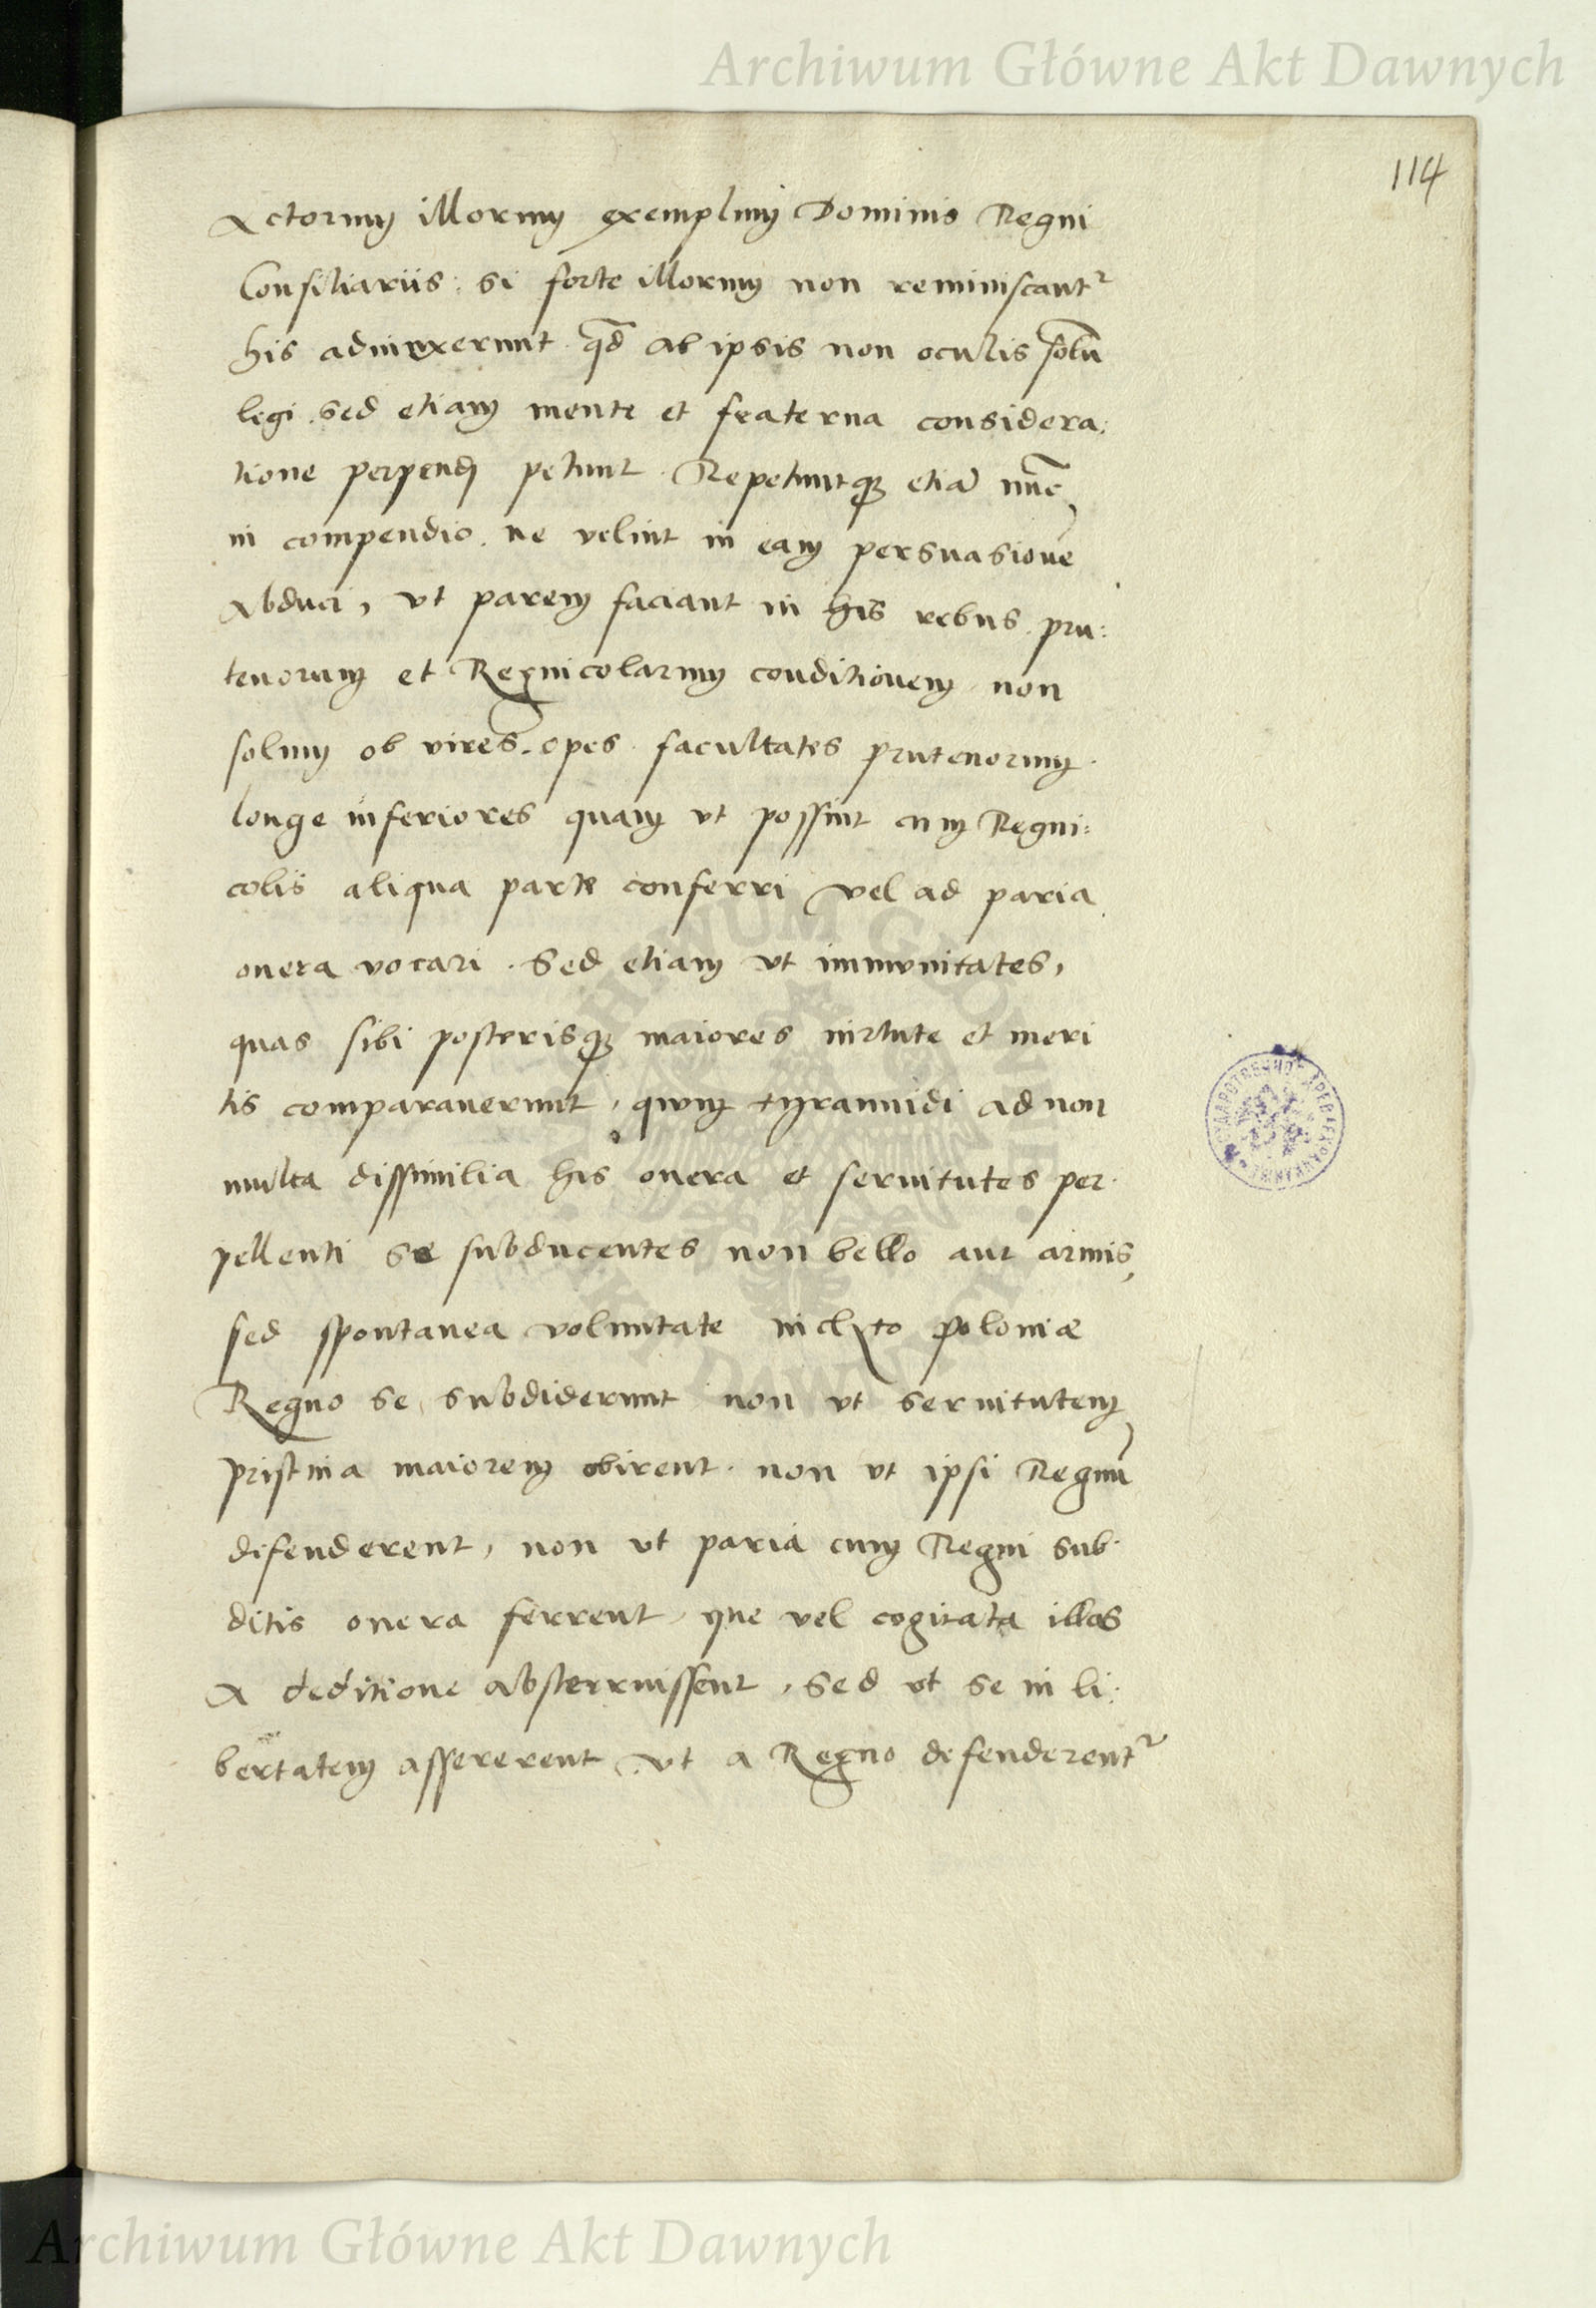 Archiwum Główne Akt Dawnych
114
Actorum illorum exemplum Dominis Regni
Consiliariis: si forte illorum non reminiscantr
his adiunxerunt qd ab ipsis non oculis solū
legi. sed etiam mente et fraterna considera:
tione perpendi petunt. Repetuntq; etiā nūc
in compendio. ne velint in eam persuasionē
Abduci, vt parem faciant in his rebus. pru:
tenorum et Regnicolarum conditionem. non
solum ob vires. opes. facultates prutenorum.
longe inferiores quam vt possint cum Regni:
colis aliqua parte conferri vel ad paria
onera vocari. Sed etiam vt immunitates,
quas sibi posterisq; maiores uirtute et meri
tis comparauerunt, quum tyrannidi ad non
multa dissimilia his onera et seruitutes per.
pellenti se subducentes non bello aut armis,
sed spontanea voluntate inclyto poloniæ
Regno se subdiderunt non vt seruitutem
pristina maiorem obirent. non vt ipsi Regnū
difenderent, non vt paria cum Regni sub.
ditis onera ferrent, que vel cogitata illos
A deditione absterruissent, sed vt se in li:
bertatem assererent, vt a Regno defenderentr
ARCHIWUM GŁÓWNE
AKT DAWNYCH
Archiwum Główne Akt Dawnych